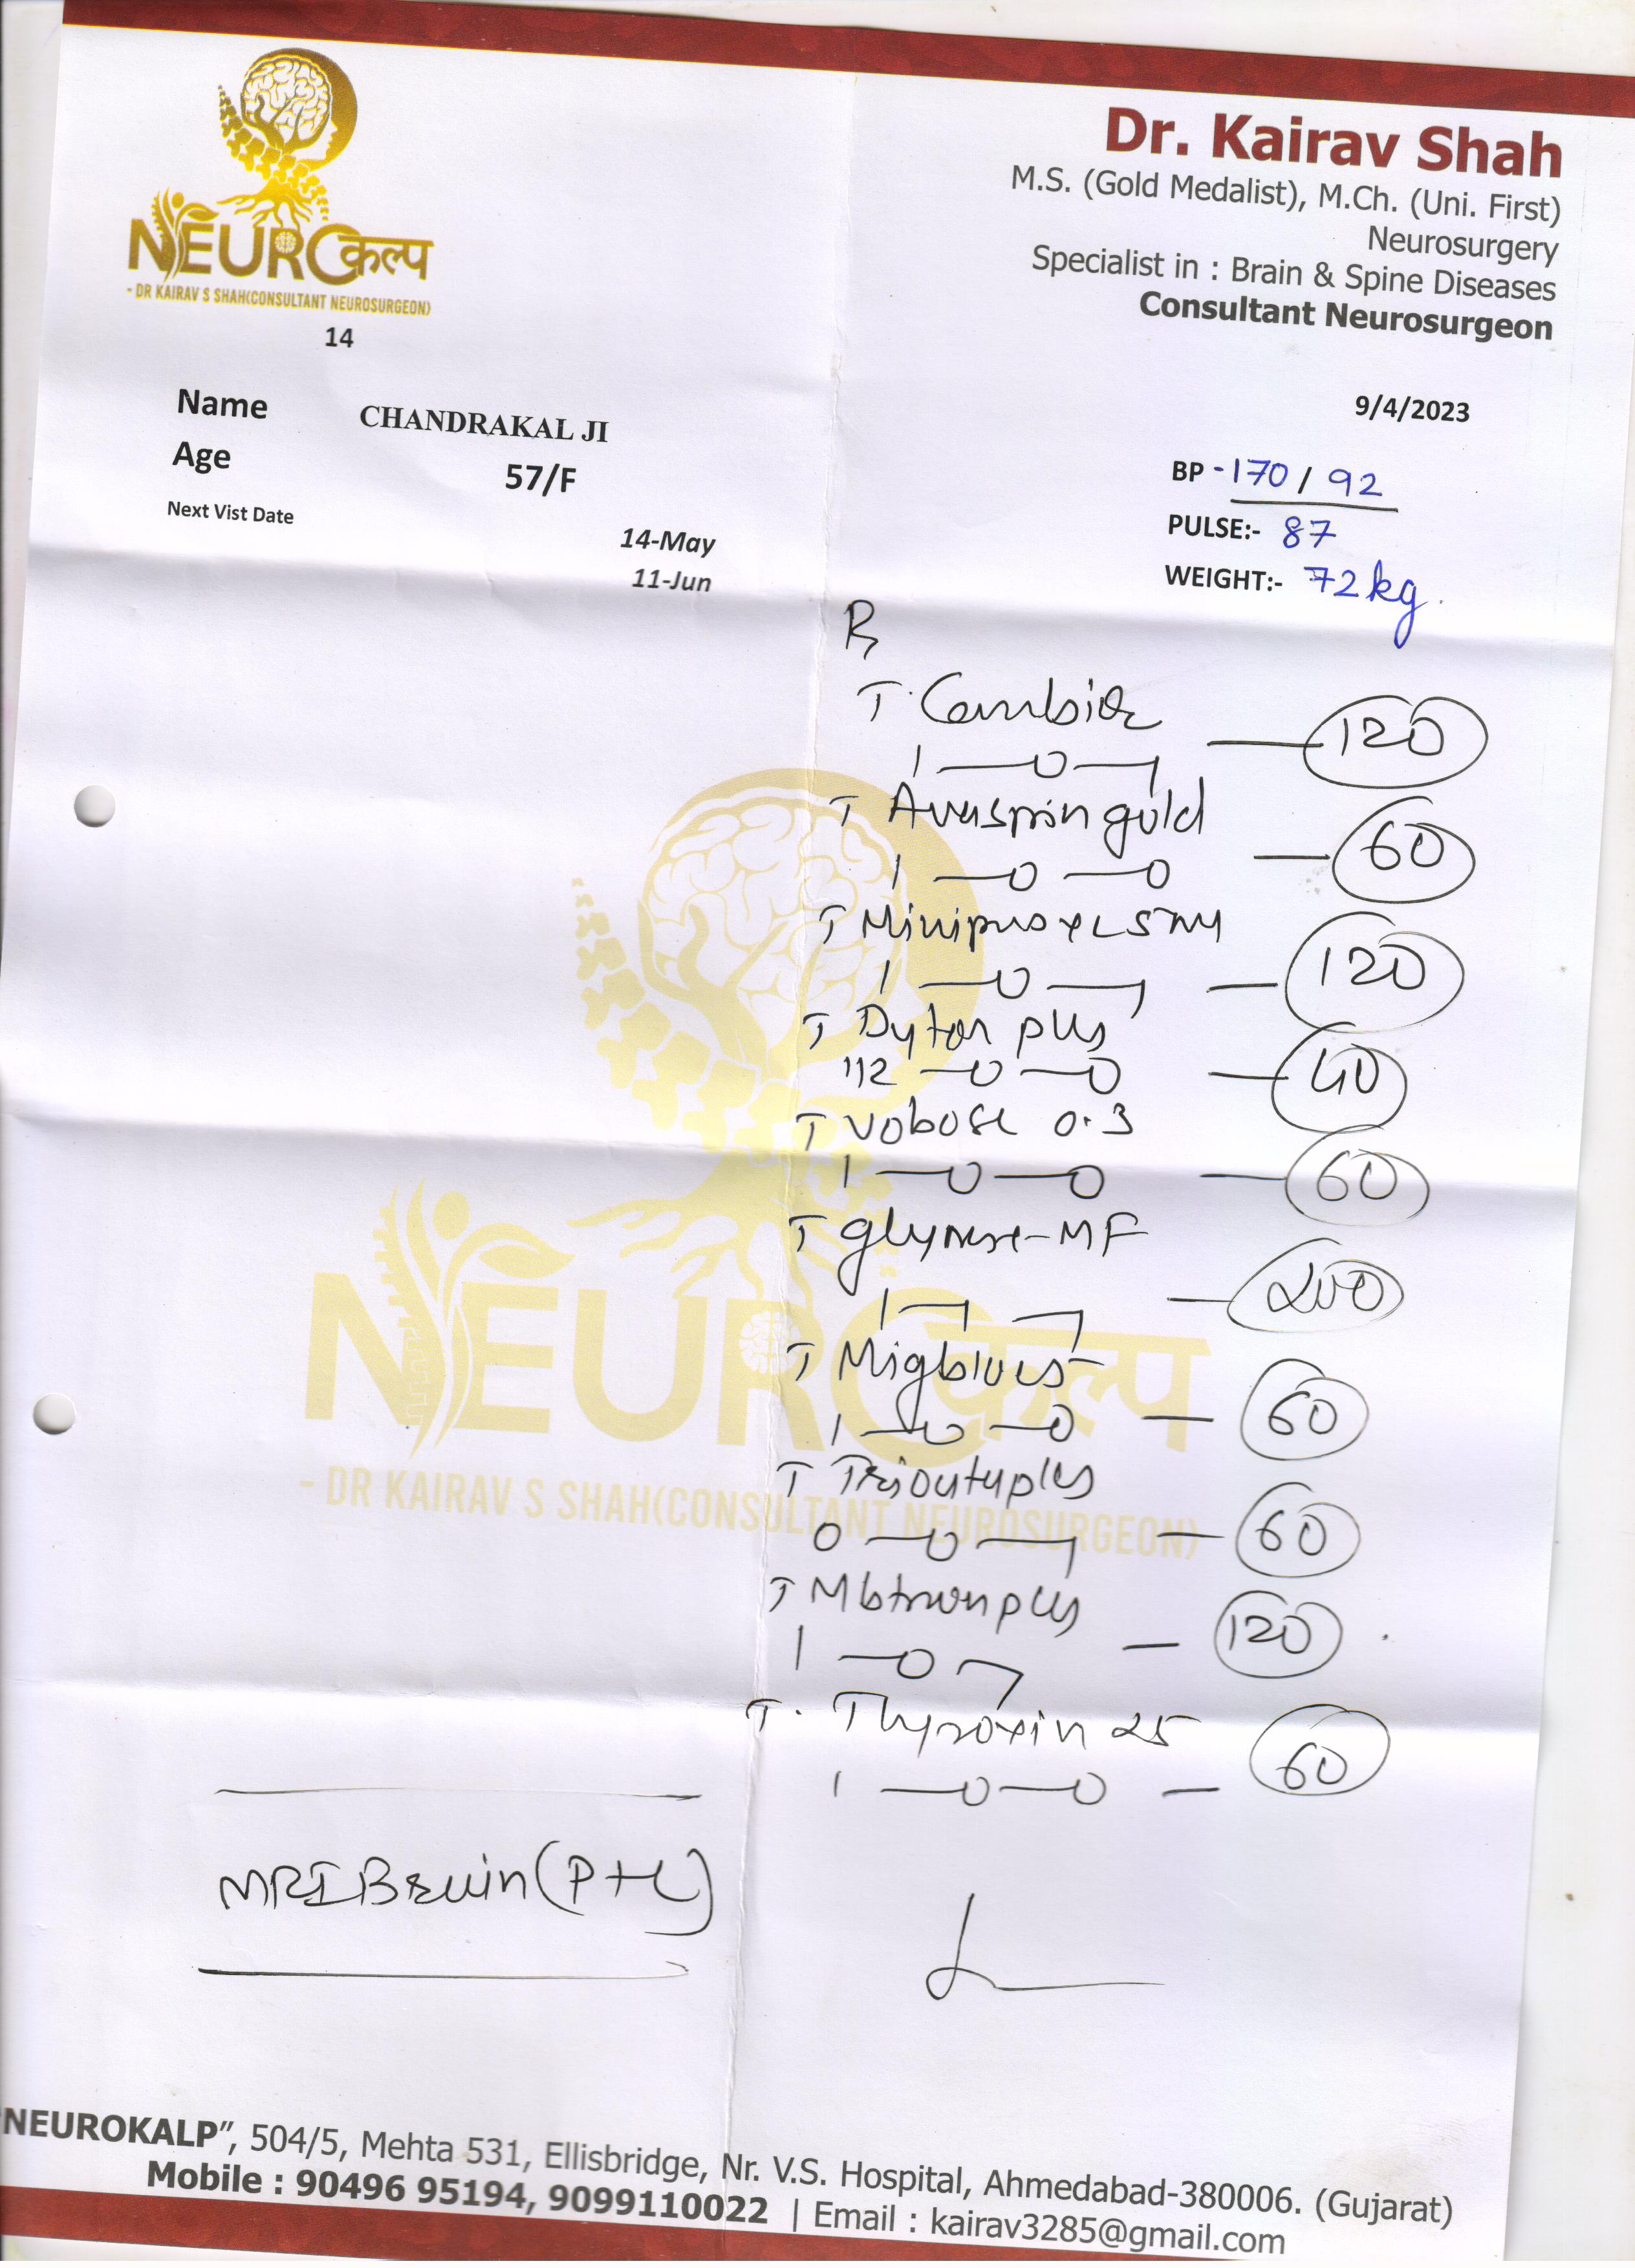 NEUROकल्प
- DR KAIRAV S SHAH(CONSULTANT NEUROSURGEON)
14
Dr. Kairav Shah
M.S. (Gold Medalist), M.Ch. (Uni. First)
Neurosurgery
Specialist in : Brain & Spine Diseases
Consultant Neurosurgeon
9/4/2023
Name CHANDRAKAL JI
Age 57/F
Next Vist Date
14-May
11-Jun
BP - 170 / 92
PULSE:- 87
WEIGHT:- 72 kg.
R
T. — 120
1 — 0 — 1
T Avasprin gold — 60
1 — 0 — 0
T — 120
1 — 0 — 1
T Dytor plus — 40
1/2 — 0 — 0
T vobose 0.3 — 60
1 — 0 — 0
T glynase-MF — 200
1 — 1 — 1
T — 60
1 — 0 — 0
T — 60
0 — 0 — 1
T — 120
1 — 0 — 1
T. Thyroxin 25 — 60
1 — 0 — 0
MRI Brain (P+C)
NEUROकल्प
- DR KAIRAV S SHAH(CONSULTANT NEUROSURGEON)
"NEUROKALP", 504/5, Mehta 531, Ellisbridge, Nr. V.S. Hospital, Ahmedabad-380006. (Gujarat)
Mobile : 90496 95194, 9099110022 | Email : kairav3285@gmail.com